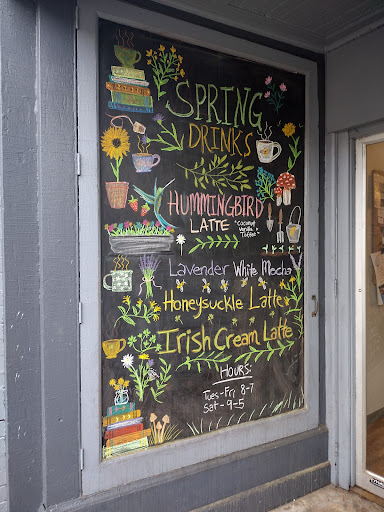 SPRING
DRINKS
HUMMINGBIRD
LATTE "Coconut
Vanilla +
Toffee"
Lavender White Mocha
Honeysuckle Latte
Irish Cream Latte
HOURS:
Tues-Fri 8-7
Sat- 9-5